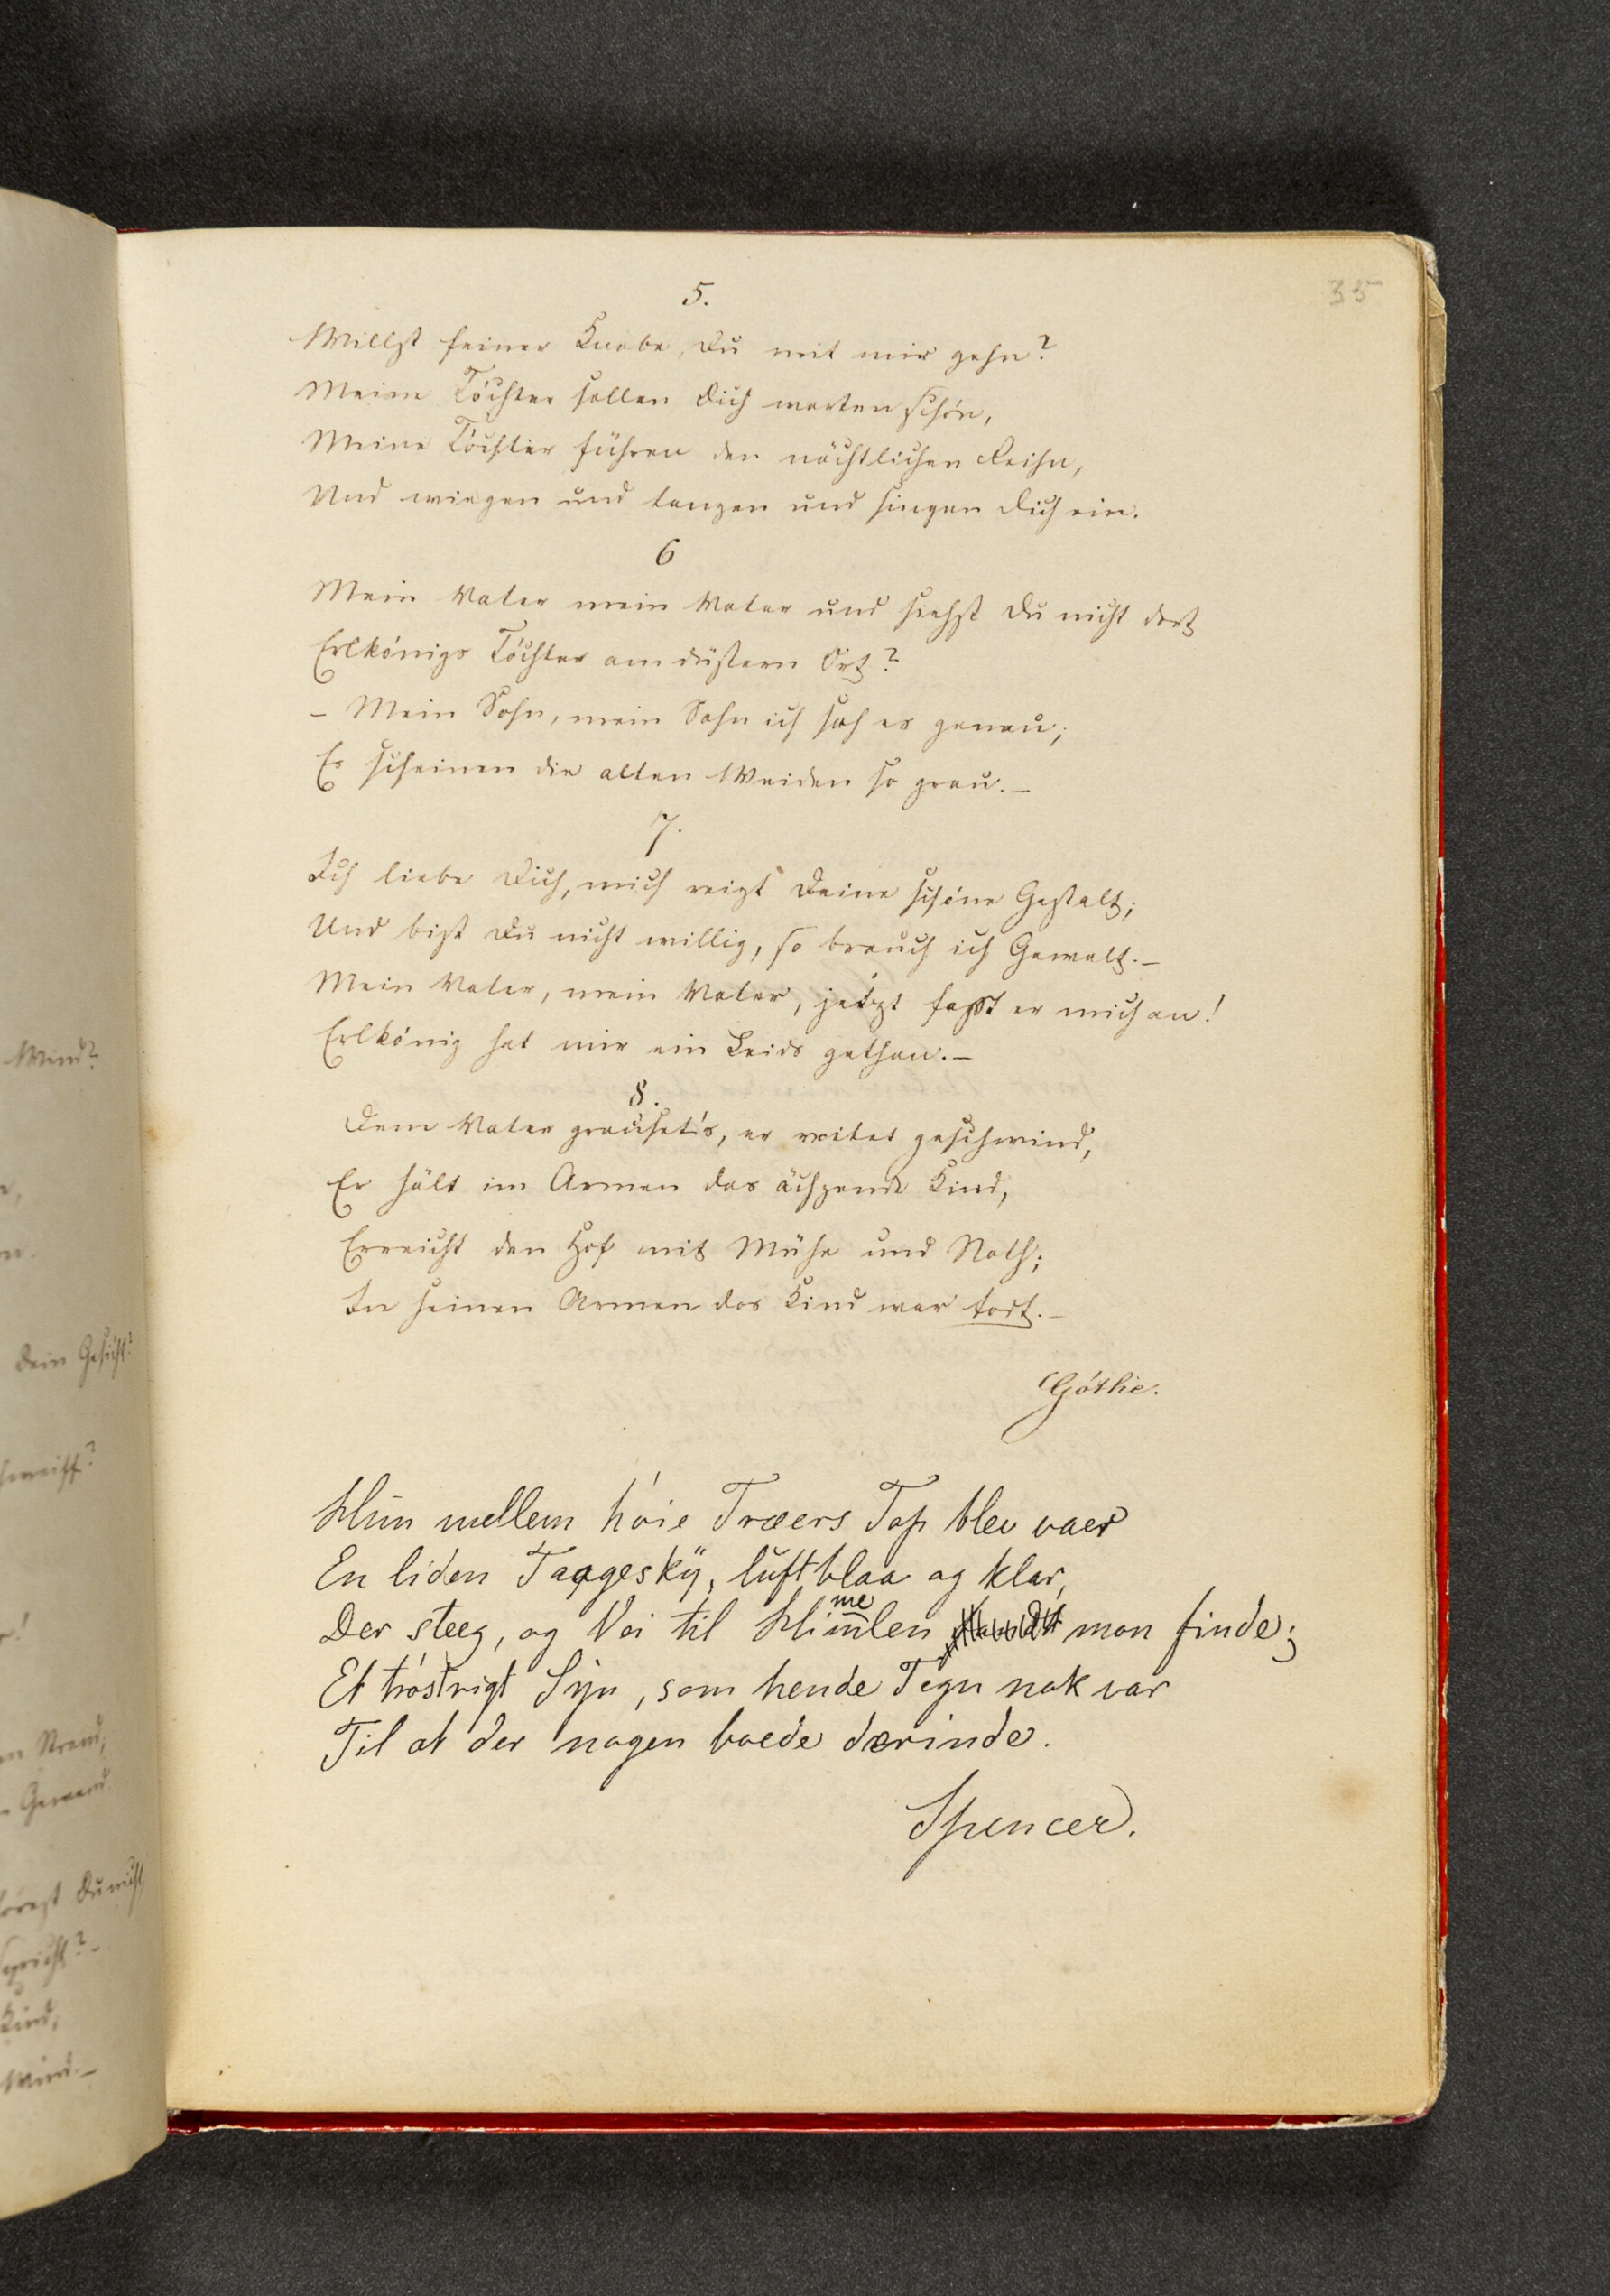 35
5.
Willst feiner Knabe, Du mit mir gehn?
Meine Töchter sollen Dich warten schön,
Meine Töchter führen den nächtlichen Reihn,
Und wiegen und tanzen und singen Dich ein.
6
Mein Vater mein Vater und siehst Du nicht dort
Erlkönigs Töchter am düstern Ort?
– Mein Sohn, mein Sohn ich seh es genau;
Es scheinen die alten Weiden so grau. –
7.
Ich liebe Dich, mich reizt Deine schöne Gestalt;
Und bist Du nicht willig, so brauch ich Gewalt. –
Mein Vater, mein Vater, jetzt fasst er mich an!
Erlkönig hat mir ein Leids gethan. –
8.
Dem Vater grauset's, er reitet geschwind,
Er hält im Armen das ächzende Kind,
Erreicht den Hof mit Mühe und Noth;
In seinen Armen das Kind war todt. –
Göthe.
Hun mellem høie Træers Top blev vaer
En liden Taageskÿ, luftblaa og klar,
Der steeg, og Vei til Himmelen mon finde;
Et trøstrigt Sÿn, som hende Tegn nok var
Til at der nogen boede derinde.
Spencer.
Wind?
Dein Gesicht?
Schweif?
Strand;
Gewand.
hörest Du nicht,
spricht? –
Kind;
Wind. –